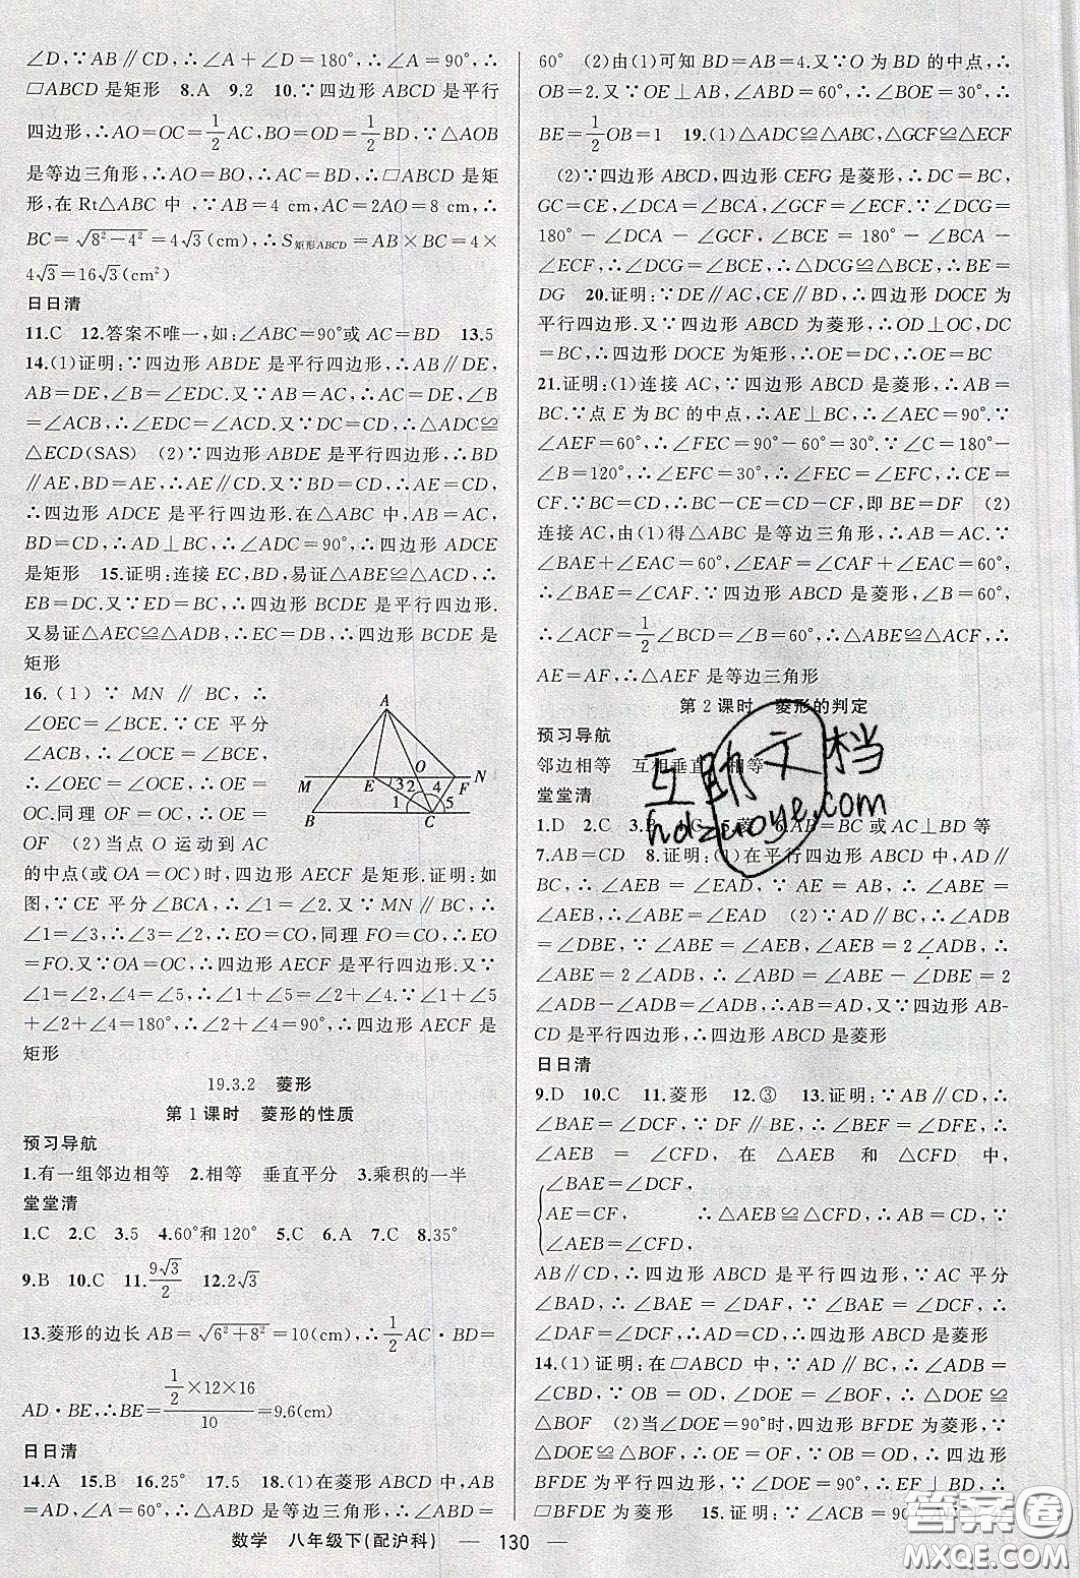 ∠D,∵AB∥CD,∴∠A+∠D=180°,∴∠A=90°,∴
□ABCD是矩形 8.A 9.2 10.∵四边形ABCD是平行
四边形,∴AO=OC=1/2AC,BO=OD=1/2BD,∵△AOB
是等边三角形,∴AO=BO,∴AC=BD,∴□ABCD是矩
形,在Rt△ABC中,∵AB=4 cm,AC=2AO=8 cm,∴
BC=√(8²-4²)=4√3(cm),∴S矩形ABCD=AB×BC=4×
4√3=16√3(cm²)
日日清
11.C 12.答案不唯一,如:∠ABC=90°或AC=BD 13.5
14.(1)证明:∵四边形ABDE是平行四边形,∴AB∥DE,
AB=DE,∠B=∠EDC.又∵AB=AC,∴AC=DE,∠B=
∠ACB,∴∠EDC=∠ACD.又∵DC=CD,∴△ADC≌
△ECD(SAS) (2)∵四边形ABDE是平行四边形,∴BD
∥AE,BD=AE,∴AE∥CD.又∵BD=CD,∴AE=CD,
∴四边形ADCE是平行四边形.在△ABC中,AB=AC,
BD=CD,∴AD⊥BC,∴∠ADC=90°,∴四边形ADCE
是矩形 15.证明:连接EC,BD,易证△ABE≌△ACD,∴
EB=DC.又∵ED=BC,∴四边形BCDE是平行四边形.
又易证△AEC≌△ADB,∴EC=DB,∴四边形BCDE是
矩形
16.(1)∵MN∥BC,∴
∠OEC=∠BCE.又∵CE平分
∠ACB,∴∠BCE=∠OCE,∴
∠OEC=∠OCE,∴OE=
OC.同理OF=OC,∴OE=
OF (2)当点O运动到AC
的中点(或OA=OC)时,四边形AECF是矩形.证明:如
图,∵CE平分∠BCA,∴∠1=∠2.又∵MN∥BC,∴
∠1=∠3,∴∠3=∠2,∴EO=CO,同理FO=CO,∴EO
=FO.又∵OA=OC,∴四边形AECF是平行四边形.又∵
∠1=∠2,∠4=∠5,∴∠1+∠5=∠2+∠4.又∵∠1+∠5
+∠2+∠4=180°,∴∠2+∠4=90°,∴四边形AECF是
矩形
A
O
M E 3 2 4 F N
1 5
B C
19.3.2 菱形
第1课时 菱形的性质
预习导航
1.有一组邻边相等 2.相等 垂直平分 3.乘积的一半
堂堂清
1.C 2.C 3.5 4.60°和120° 5.C 6.A 7.C 8.35°
9.B 10.C 11.9√3/2 12.2√3
13.菱形的边长AB=√(6²+8²)=10(cm),∴1/2AC·BD=
AD·BE,∴BE=(1/2×12×16)/10=9.6(cm)
日日清
14.A 15.B 16.25° 17.5 18.(1)在菱形ABCD中,AB
=AD,∠A=60°,∴△ABD是等边三角形,∴∠ABD=
60° (2)由(1)可知BD=AB=4.又∵O为BD的中点,∴
OB=2.又∵OE⊥AB,∠ABD=60°,∴∠BOE=30°,∴
BE=1/2OB=1 19.(1)△ADC≌△ABC,△GCF≌△ECF
(2)∵四边形ABCD,四边形CEFG是菱形,∴DC=BC,
GC=CE,∠DCA=∠BCA,∠GCF=∠ECF.∵∠DCG=
180°-∠DCA-∠GCF,∠BCE=180°-∠BCA-
∠ECF,∴∠DCG=∠BCE,∴△DCG≌△BCE,∴BE=
DG 20.证明:∵DE∥AC,CE∥BD,∴四边形DOCE为
平行四边形.又∵四边形ABCD为菱形,∴OD⊥OC,DC
=BC,∴四边形DOCE为矩形,∴OE=DC,∴OE=BC
21.证明:(1)连接AC,∵四边形ABCD是菱形,∴AB=
BC.∵点E为BC的中点,∴AE⊥BC,∴∠AEC=90°.∵
∠AEF=60°,∴∠FEC=90°-60°=30°.∵∠C=180°-
∠B=120°,∴∠EFC=30°,∴∠FEC=∠EFC,∴CE=
CF.∵BC=CD,∴BC-CE=CD-CF,即BE=DF (2)
连接AC,由(1)得△ABC是等边三角形,∴AB=AC.∵
∠BAE+∠EAC=60°,∠EAF=∠CAF+∠EAC=60°,
∴∠BAE=∠CAF.∵四边形ABCD是菱形,∠B=60°,
∴∠ACF=1/2∠BCD=∠B=60°,∴△ABE≌△ACF,∴
AE=AF,∴△AEF是等边三角形
第2课时 菱形的判定
预习导航
邻边相等 互相垂直 相等
堂堂清
1.D 2.C 3.B 5.菱 6.AB=BC或AC⊥BD等
7.AB=CD 8.证明:(1)在平行四边形ABCD中,AD∥
BC,∴∠AEB=∠EAD,∵AE=AB,∴∠ABE=
∠AEB,∴∠ABE=∠EAD (2)∵AD∥BC,∴∠ADB
=∠DBE,∵∠ABE=∠AEB,∠AEB=2∠ADB,∴
∠ABE=2∠ADB,∴∠ABD=∠ABE-∠DBE=2
∠ADB-∠ADB=∠ADB,∴AB=AD,又∵四边形AB-
CD是平行四边形,∴四边形ABCD是菱形
日日清
9.D 10.C 11.菱形 12.③ 13.证明:∵AB∥CD,∴
∠BAE=∠DCF,∵DF∥BE,∴∠BEF=∠DFE,∴
∠AEB=∠CFD,在△AEB和△CFD中,
∠BAE=∠DCF,
AE=CF, ∴△AEB≌△CFD,∴AB=CD,∵
∠AEB=∠CFD,
AB∥CD,∴四边形ABCD是平行四边形,∵AC平分
∠BAD,∴∠BAE=∠DAF,∵∠BAE=∠DCF,∴
∠DAF=∠DCF,∴AD=CD,∴四边形ABCD是菱形
14.(1)证明:在□ABCD中,∵AD∥BC,∴∠ADB=
∠CBD,∵OB=OD,∠BOF=∠DOE,∴△DOE≌
△BOF (2)当∠DOE=90°时,四边形BFDE为菱形.∵
△DOE≌△BOF,∴OE=OF,∵OB=OD,∴四边形
BFDE为平行四边形,∵∠DOE=90°,∴EF⊥BD,∴
□BFDE为菱形 15.证明:∵∠ACB=90°
数学 八年级下(配沪科) — 130 —
互助文档
hdzuoye.com
答案圈
MXQE.COM